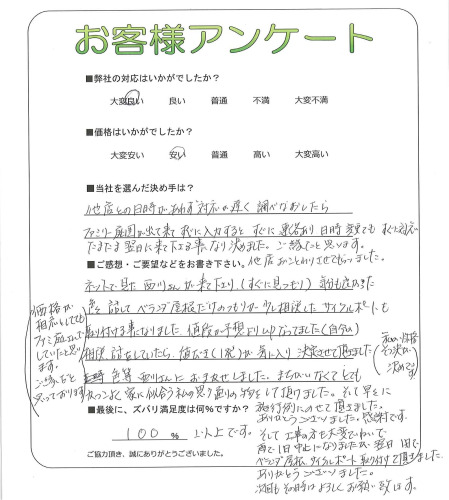 お客様アンケート
■弊社の対応はいかがでしたか？
大変良い 良い 普通 不満 大変不満
■価格はいかがでしたか？
大変安い 安い 普通 高い 大変高い
■当社を選んだ決め手は？
他店との日時があわず対応が遅く調べなおしたら
ファミリー庭園が出て来て 入力すると すぐに 連絡あり 日時 すぐに対応
たまたま翌日に来て下さる事になり決めました。ご縁だと思います。
他店おことわりさせてもらいました。
■ご感想・ご要望などをお書き下さい。
ネットで見た 西川さんが来て下さり(すぐに見つもり)
色々話して ベランダ屋根だけのつもりが 相談した サイクルポートも
取り付ける事になりました 値段が予想より なってました(自分)
相談 討をしていたら 気に入り 決定させて頂きました
色等 西川さんに おまかせしました。まちがいなくとても
家に似合う 私の思う通りの をして頂けました。そして早々に
価格が
相応しても
ファミ
していたと思い
ます。
ご縁だと
思っております
決めです
■最後に、ズバリ満足度は何％ですか？
100 % 以上です。
ご協力頂き、誠にありがとうございました。
施行例にのせて頂きました。
ありがとうございました。感謝です。
そして工事の方も大変でいねいで
雨で1日中止になりましたが 翌日1日で
ベランダ屋根、サイクルポート取り付けて頂きました。
ありがとうございました。
次回もその時はよろしくお願い致します。